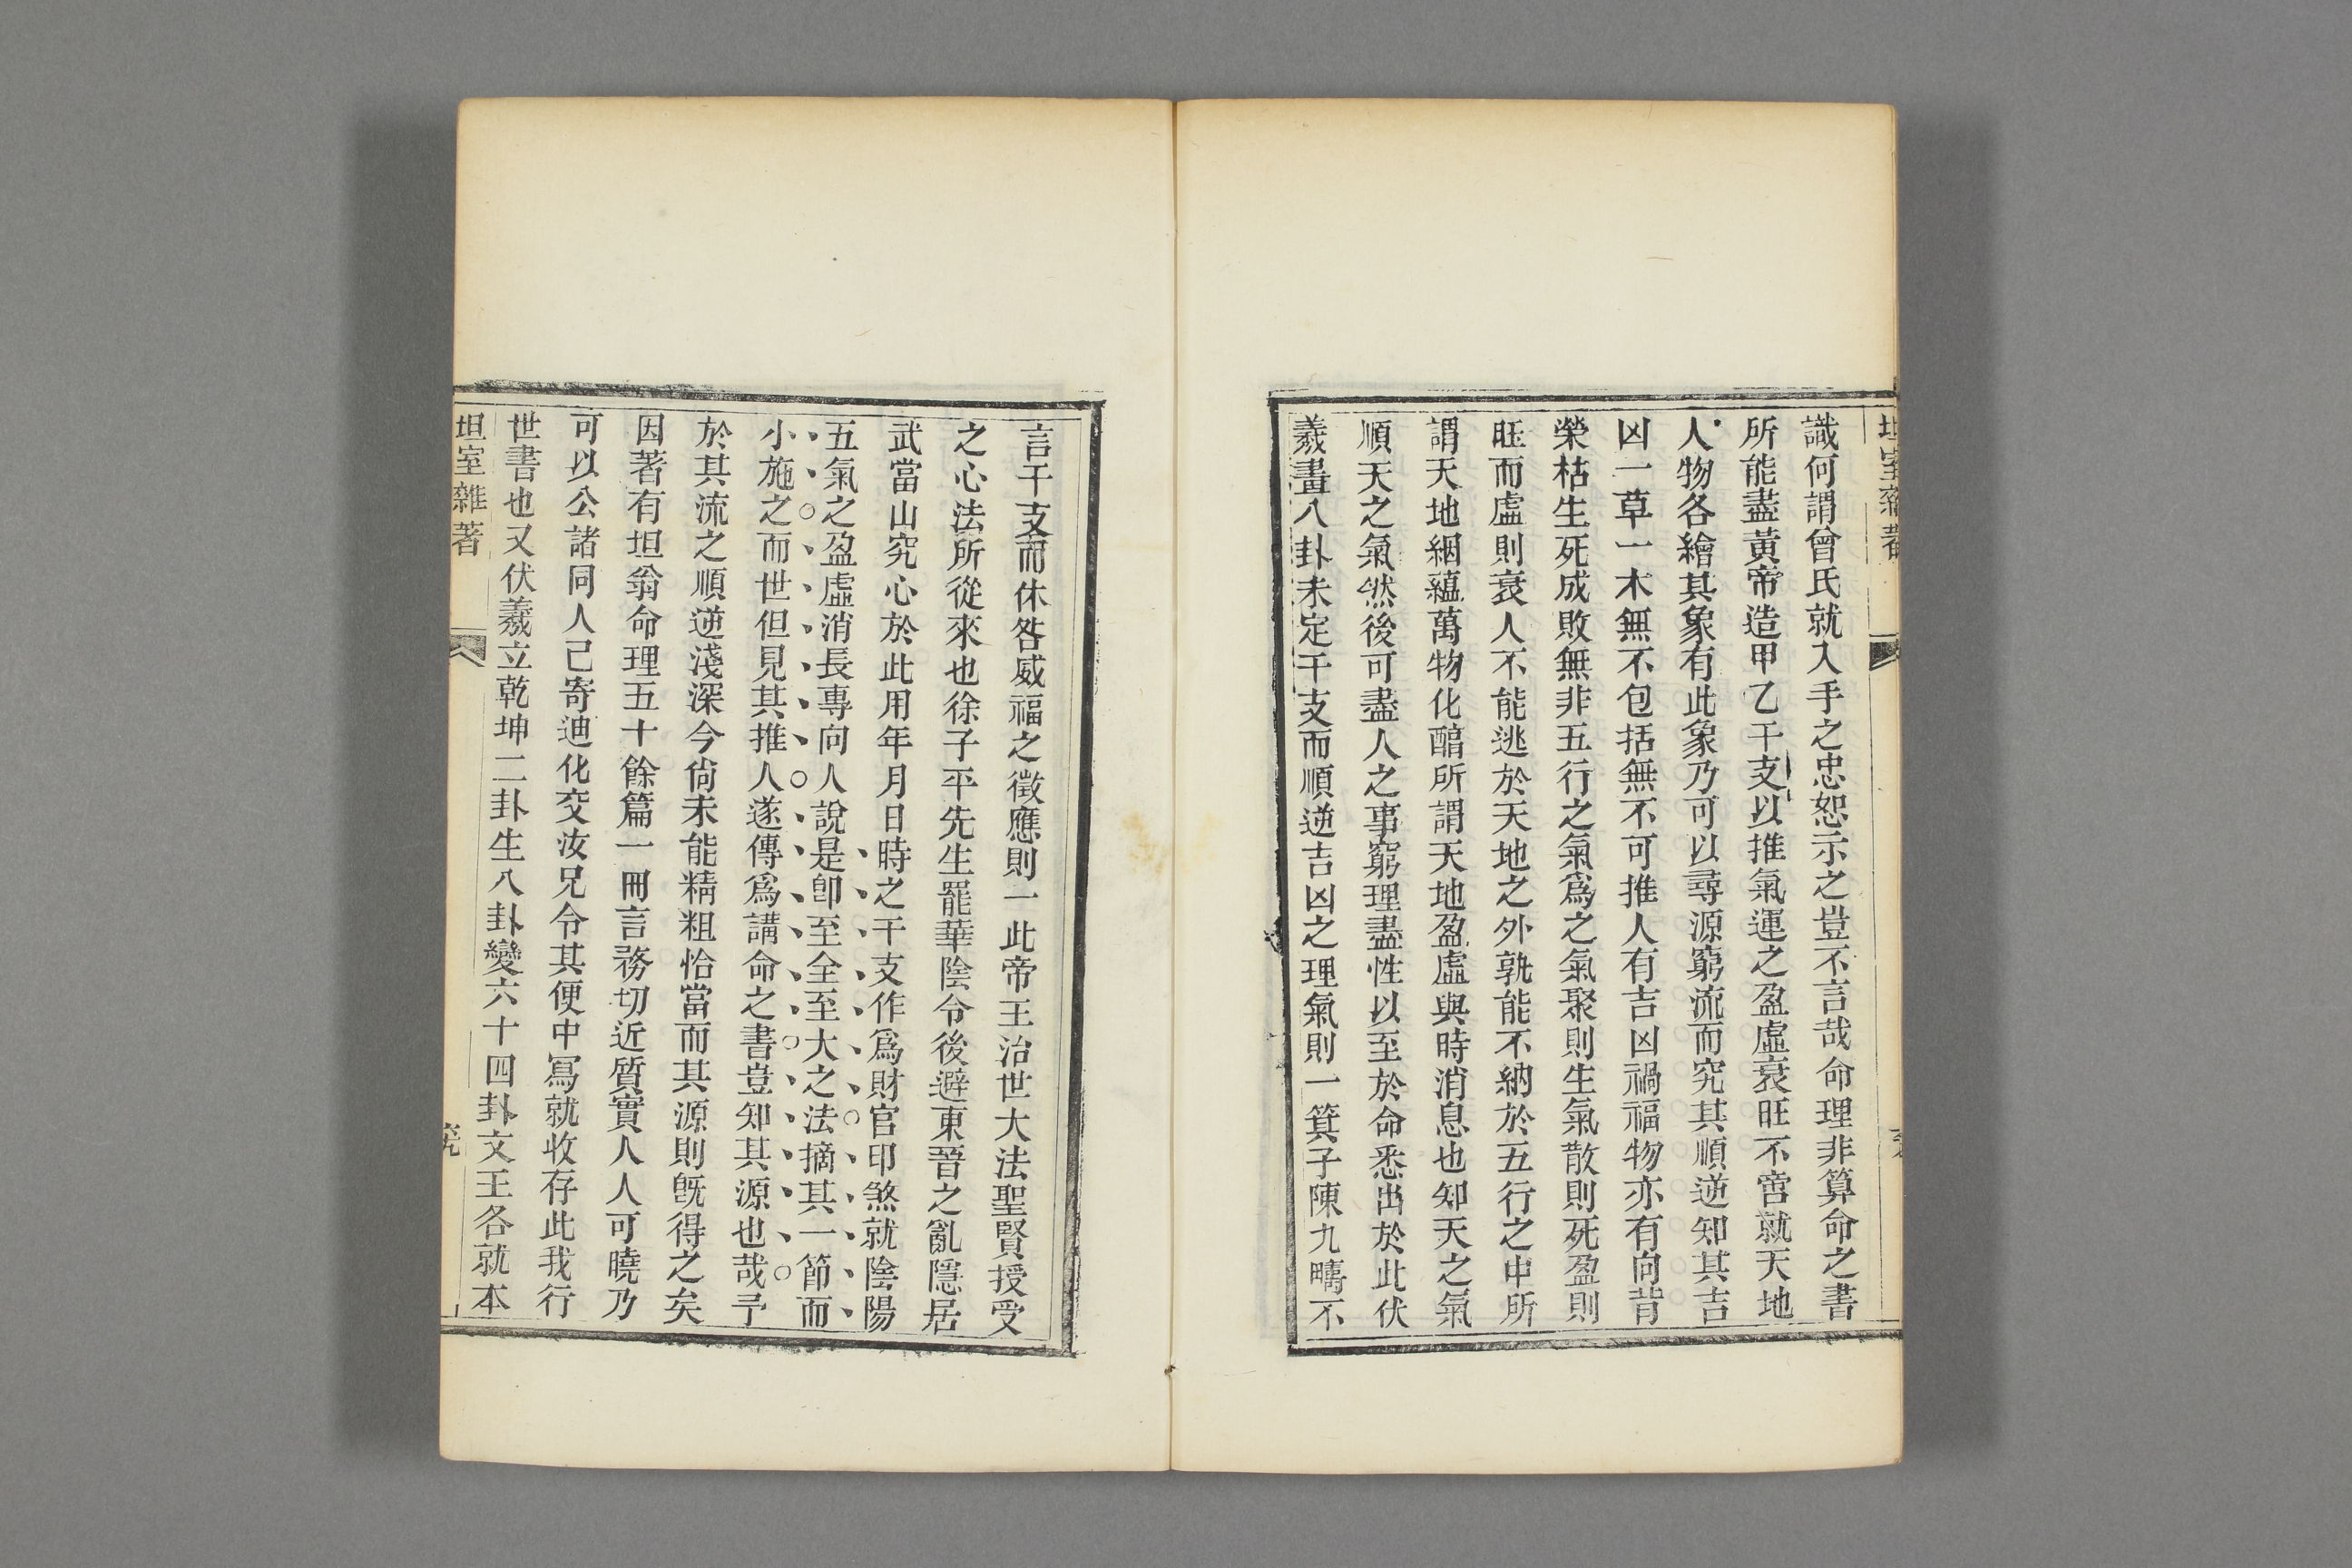 坦室雜著
識何謂曾氏就入手之忠恕示之豈不言哉命理非算命之書
所能盡黃帝造甲乙干支以推氣運之盈虛衰旺不啻就天地
人物各繪其象有此象乃可以尋源窮流而究其順逆知其吉
凶一草一木無不包括無不可推人有吉凶禍福物亦有向背
榮枯生死成敗無非五行之氣爲之氣聚則生氣散則死盈則
旺而虛則衰人不能逃於天地之外孰能不納於五行之中所
謂天地絪蘊萬物化醕所謂天地盈虛與時消息也知天之氣
順天之氣然後可盡人之事窮理盡性以至於命悉出於此伏
羲畫八卦未定干支而順逆吉凶之理氣則一箕子陳九疇不
言干支而休咎威福之徵應則一此帝王治世大法聖賢授受
之心法所從來也徐子平先生罷華陰令後避東晉之亂隱居
武當山究心於此用年月日時之干支作爲財官印煞就陰陽
五氣之盈虛消長專向人說是卽至全至大之法摘其一節而
小施之而世但見其推人遂傳爲講命之書豈知其源也哉予
於其流之順逆淺深今尙未能精粗恰當而其源則旣得之矣
因著有坦翁命理五十餘篇一冊言務切近質實人人可曉乃
可以公諸同人已寄迪化交汝兄令其便中寫就收存此我行
世書也又伏羲立乾坤二卦生八卦變六十四卦文王各就本
坦室雜著